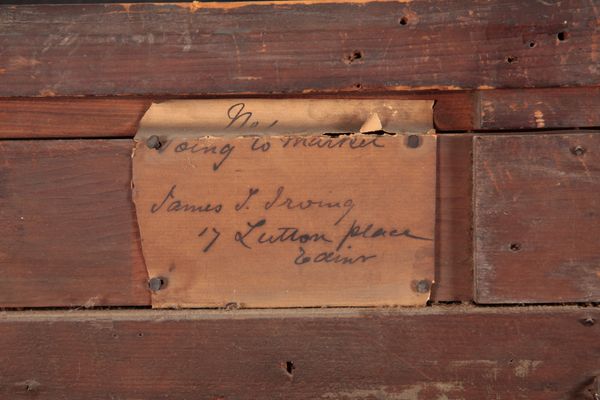 No 1
Going to Market
James T. Irving
17 Lutton place
Edinr